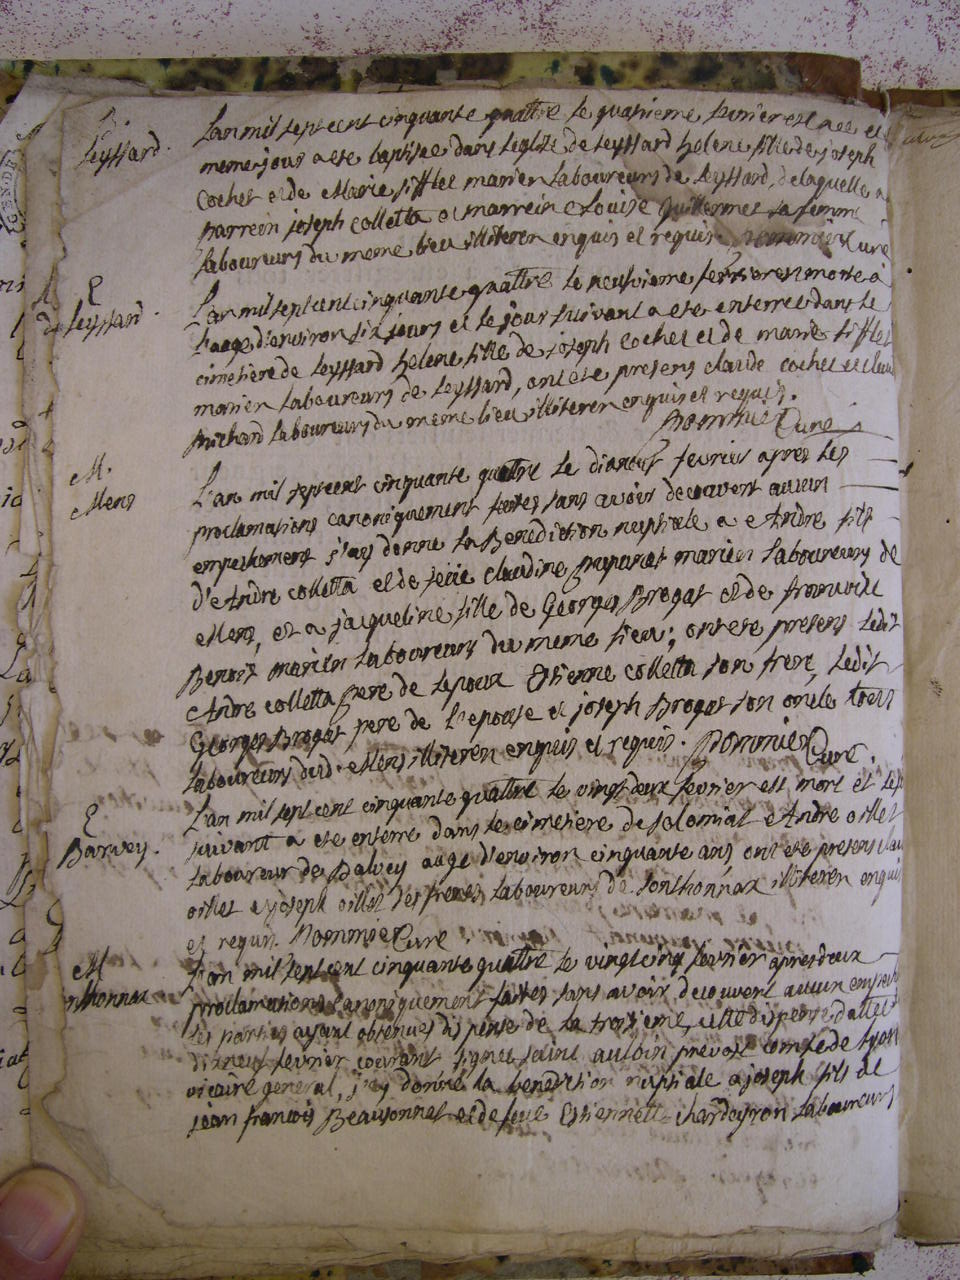 B.
Leyssard.
L'an mil sept cent cinquante quattre le quatrieme fevrier est née et
meme jour a eté baptisée dans leglise de Leyssard helene fille de joseph
Cochet et de Marie sifflet mariés Laboureurs de Leyssard, de laquelle a
parrein joseph Colletta et marreine Louise Guillermet sa femme
Laboureurs du meme lieu illiteren enquis et requis. Pommier Curé
E
de Leyssard.
L'an mil sept cent cinquante quattre le neufvieme fevrier est morte à
l'aage d'environ six jours et le jour suivant a eté enterrée dans le
cimetiere de Leyssard helene fille de joseph Cochet et de marie sifflet
marien Laboureurs de Leyssard, ont eté presens claude Cochet et
Michard Laboureurs du meme lieu illiteren enquis et requis.
Pommier Curé
M.
Mens
L'an mil sept cent cinquante quattre le dixneuf fevrier apres les
proclamations canoniquement faites sans avoir decouvert aucun
empechement j'ay donné la Benediction nuptiale a Andre fils
d'Andre Colletta et de feüe Claudine marien Laboureurs de
Mens, et a jacqueline fille de George Brogat et de
Benoit marien Laboureurs du meme lieu; ont eté presens ledit
Andre Colletta pere de lepoux Etienne Colletta son frere, ledit
George Brogat pere de l'epouse et joseph Brogat son oncle tous
Laboureurs dud. Mens illiteren enquis et requis. Pommier Curé.
E
Balvey.
L'an mil sept cent cinquante quattre le vingt deux fevrier est mort et le
suivant a eté enterré dans le cimetiere de solomiat Andre oillet
Laboureur de Balvey agé d'environ cinquante ans, ont eté presens
oillet et joseph oillet ses freres Laboureurs de sonthonnax illiteren enquis
et requis. Pommier Curé.
M
nthonnax
L'an mil sept cent cinquante quattre le vingt cinq fevrier apres deux
proclamations canoniquement faites sans avoir decouvert aucun
les parties ayant obtenues dispense de la troisieme, cette dispense dattée
dixneuf fevrier courant signée saint aulbin prevost comte de Lyon
vicaire general, j'ay donné la benediction nuptiale a joseph fils de
jean francois Beausonnet et de feüe Estiennette Chardeyron Laboureurs